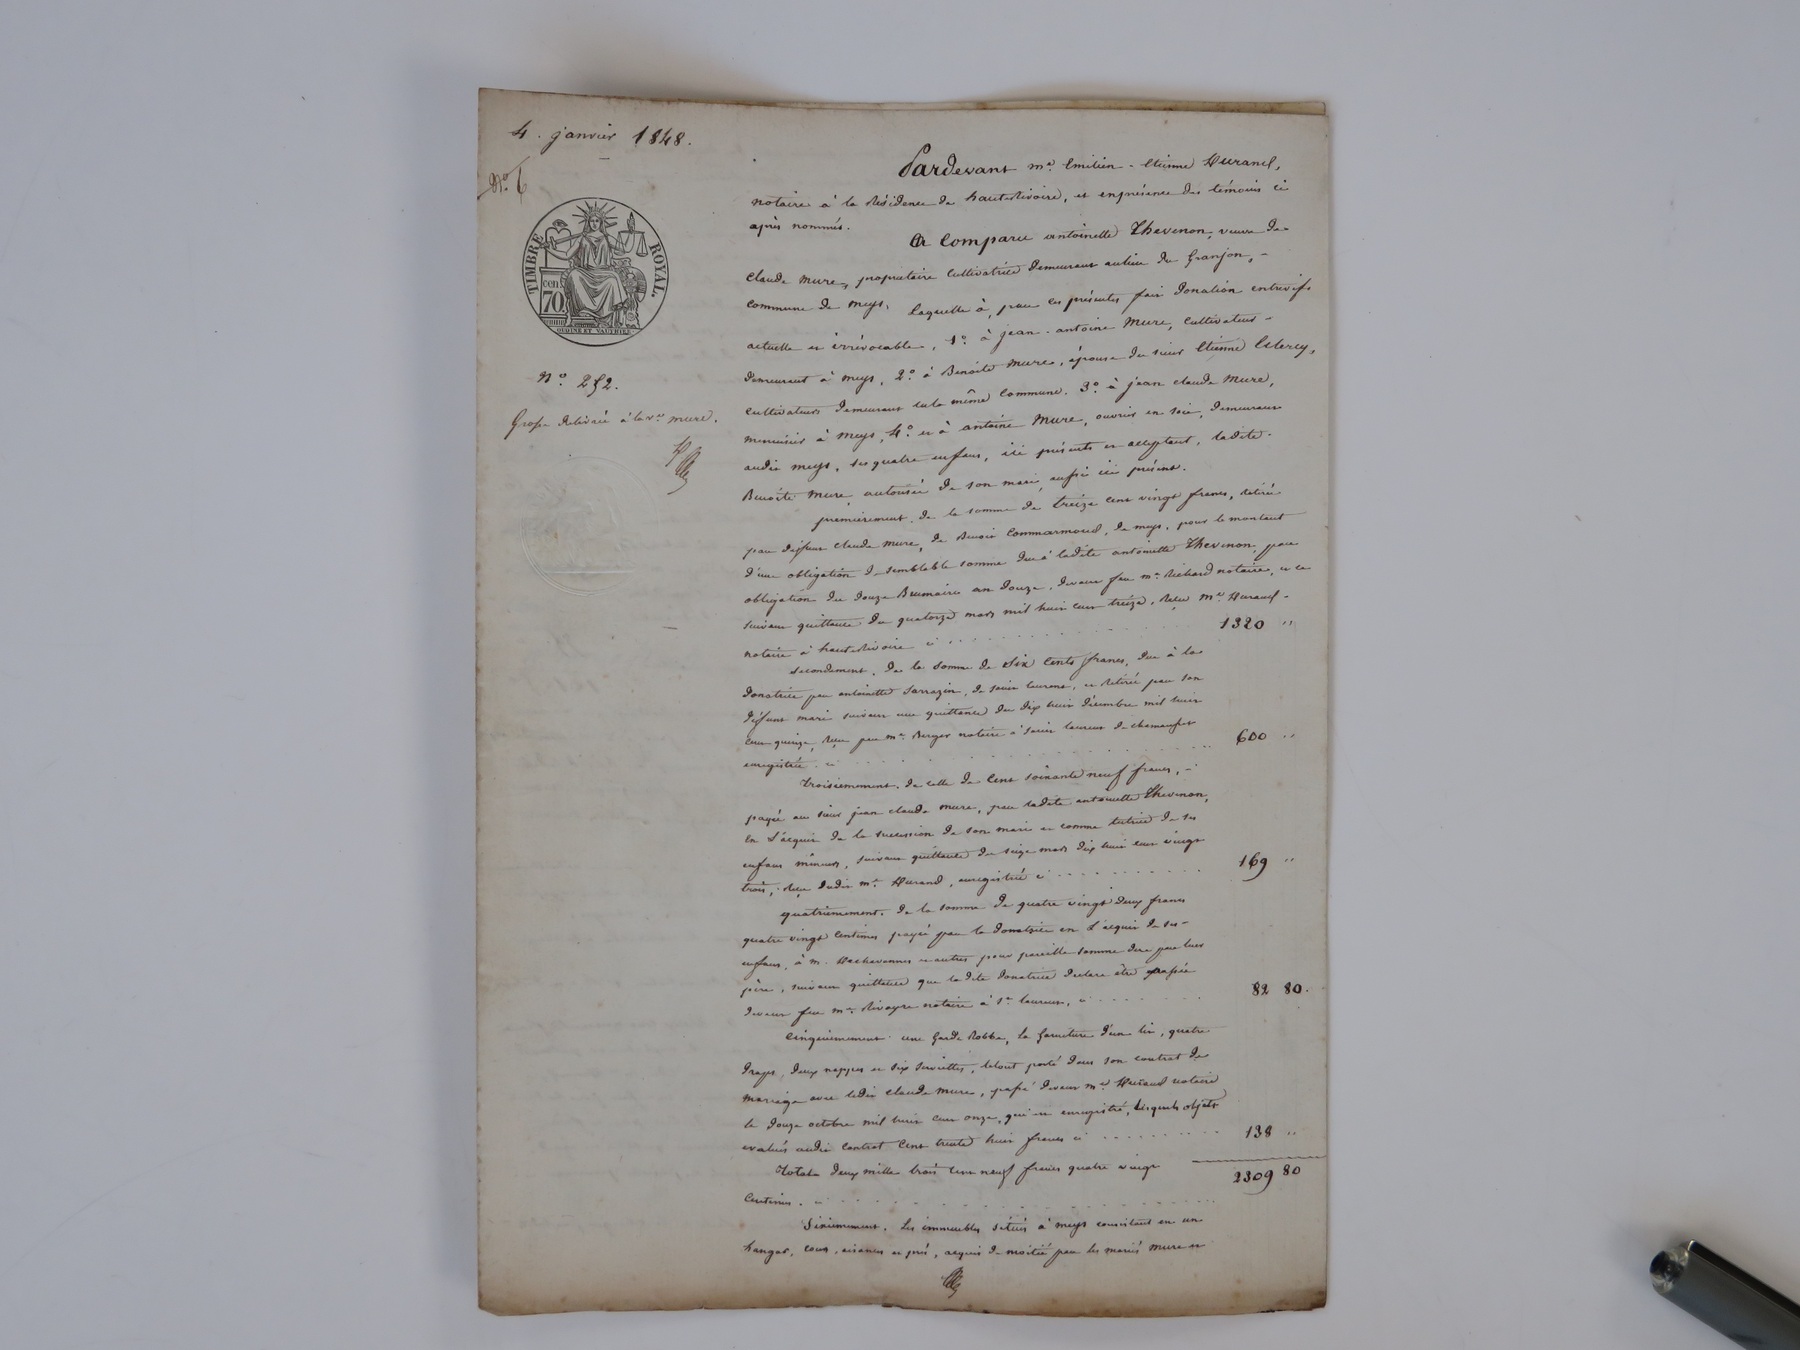 4. janvier 1848.
No. 6
TIMBRE ROYAL.
cen. 70
OUDINE ET VAUTHIER
No. 252.
Grosse délivrée à la ve. mure.
Pardevant me. Emilien-Etienne Durand,
notaire à la Résidence de hauterivoire, et enprésence des témoins ci
après nommés.
A Comparu antoinette Thevenon, veuve de
Claude mure, propriétaire Cultivatrice demeurant aulieu du Granjon,
commune de meys, laquelle à, par ces présentes fait donation entrevifs
actuelle et irrévocable, 1o. à jean-antoine Mure, Cultivateur
demeurant à meys, 2o. à Benoite mure, épouse du sieur Etienne
cultivateurs demeurant même Commune. 3o. à jean claude Mure,
menuisier à meys, 4o. et à antoine Mure, ouvrier en soie, demeurant
audit meys, ses quatre enfans, ici présents et acceptant, ladite
Benoite Mure autorisée de son mari, aussi ici présent.
premièrement. de la somme de treize cent vingt francs, retirée
par défunt claude mure, de Benoit Commarmond, de meys, pour le montant
d'une obligation de semblable somme due à ladite antoinette Thevenon, par
obligation du douze Brumaire an douze, devant feu me. Richard notaire, et ce
suivant quittance du quatorze mars mil huit cent treize, reçu me. Durand
notaire à hauterivoire ci 1320 "
secondement. de la somme de Six Cents francs, due à la
donatrice par antoinette Sarrazin, de saint laurent, et retirée par son
défunt mari suivant une quittance du dix huit décembre mil huit
cent quinze, reçu par me. Berger notaire à saint laurent de chamousset
enregistrée. ci 600 "
troisièmement. de celle de Cent soixante neuf francs,
payée au sieur jean claude mure, par ladite antoinette Thevenon,
en l'acquit de la succession de son mari et comme tutrice de ses
enfans mineurs, suivant quittance du seize mars dix huit cent vingt
trois, reçu dudit me. Durand, enregistrée ci 169 "
quatrièmement. de la somme de quatre vingt deux francs
quatre vingt Centimes payée par la donatrice en l'acquit de ses
enfans, à m. et autres pour pareille somme due par leur
père, suivant quittance que ladite donatrice declare être passée
devant feu me. Rivoyre notaire à st. laurent, ci 82 80.
Cinquièmement. une Garde Robbe, la Garniture d'un lit, quatre
draps, deux nappes et six serviettes, letout porté dans son contrat de
mariage avec ledit claude mure, passé devant me. Durand notaire
le douze octobre mil huit cent onze, qui est enregistré, lesquels objets
evalués audit contrat Cent trente huit francs ci 138 "
Total deux mille trois cent neuf francs quatre vingt 2309 80
Centimes. ci
Sixièmement. les immeubles situés à meys consistant en un
hangar, cour, aisances et pré, acquis de moitié par les mariés mure et